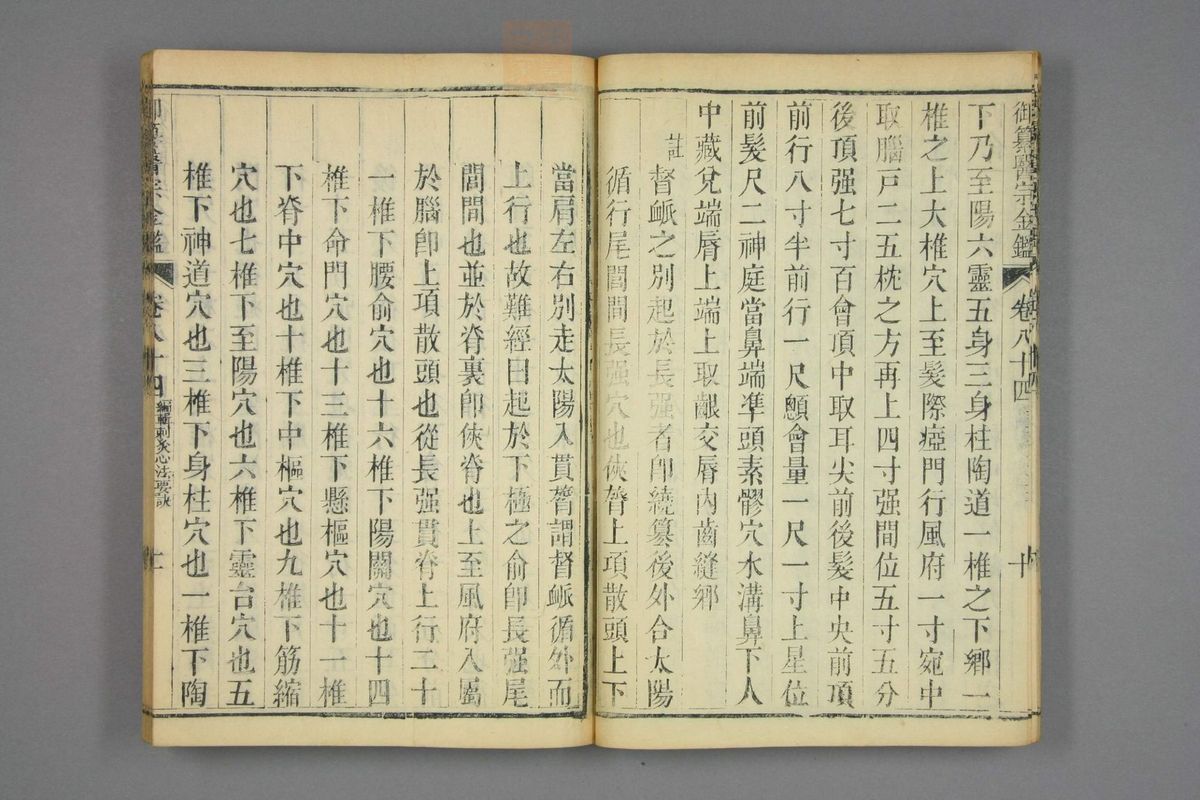 御纂醫宗金鑑 卷八十四 十
下乃至陽六靈五身三身柱陶道一椎之下鄉一
椎之上大椎穴上至髮際瘂門行風府一寸宛中
取腦戸二五枕之方再上四寸强間位五寸五分
後頂强七寸百會頂中取耳尖前後髮中央前頂
前行八寸半前行一尺顖會量一尺一寸上星位
前髮尺二神庭當鼻端準頭素髎穴水溝鼻下人
中藏兌端脣上端上取齦交脣內齒縫鄉
註
督衇之別起於長强者卽繞纂後外合太陽
循行尾閭間長强穴也俠膂上項散頭上下
當肩左右別走太陽入貫膂謂督衇循外而
上行也故難經曰起於下極之俞卽長强尾
閭間也並於脊裏卽俠脊也上至風府入屬
於腦卽上項散頭也從長强貫脊上行二十
一椎下腰俞穴也十六椎下陽關穴也十四
椎下命門穴也十三椎下懸樞穴也十一椎
下脊中穴也十椎下中樞穴也九椎下筋縮
穴也七椎下至陽穴也六椎下靈台穴也五
椎下神道穴也三椎下身柱穴也一椎下陶
御纂醫宗金鑑 卷八十四 編輯刺灸心法要訣 十一